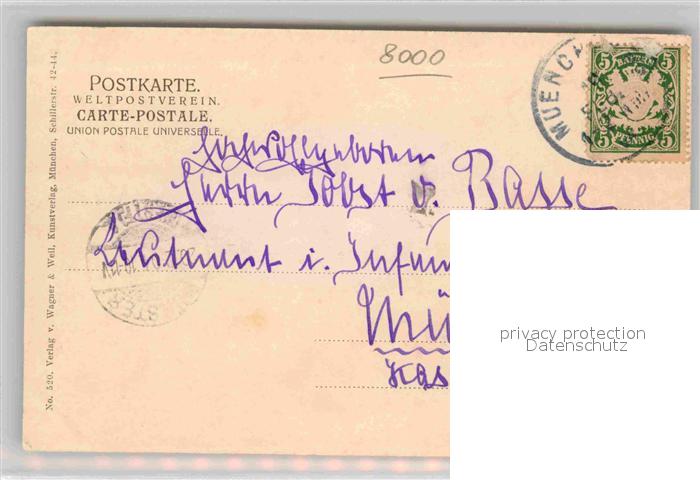 8000
POSTKARTE.
WELTPOSTVEREIN.
CARTE-POSTALE.
UNION POSTALE UNIVERSELLE.
MUENCH
5 BAYERN 5
5 PFENNIG 5
Hochwollgeboren
Herrn Jobst v. Basse
Leutnant i. Infan
Mü
privacy protection
Datenschutz
No. 520. Verlag v. Wagner & Weil, Kunstverlag, München, Schillerstr. 42-44.